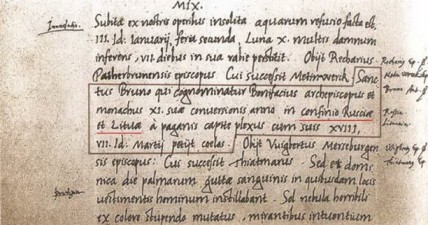 MIX.
Subita ex nostris operibus insolita aquarum refusio facta est
III. Id. Ianuarij, feria secunda, Luna X. multis damnum
inferens, VII. diebus in sua rabie perstitit. Obijt Recharius
Patherbrunensis episcopus Cui successit Metinwerck. Sanc
tus Bruno qui cognominatur Bonifacius archepiscopus et
monachus XI. suæ conversionis anno in confinio Rusciæ
et Lituæ à paganis capite plexus cum suis XVIII,
VII. Id. Martij petijt cœlos. Obijt Wigbertus Merseburgen
sis episcopus: Cui successit Thiatmarus. Sed et domi
nica die palmarum guttæ sanguinis in quibusdam locis
vestimentis hominum instillabant. Sol nebula horribili
ex colore stupendo mutatus, mirantibus intuentium